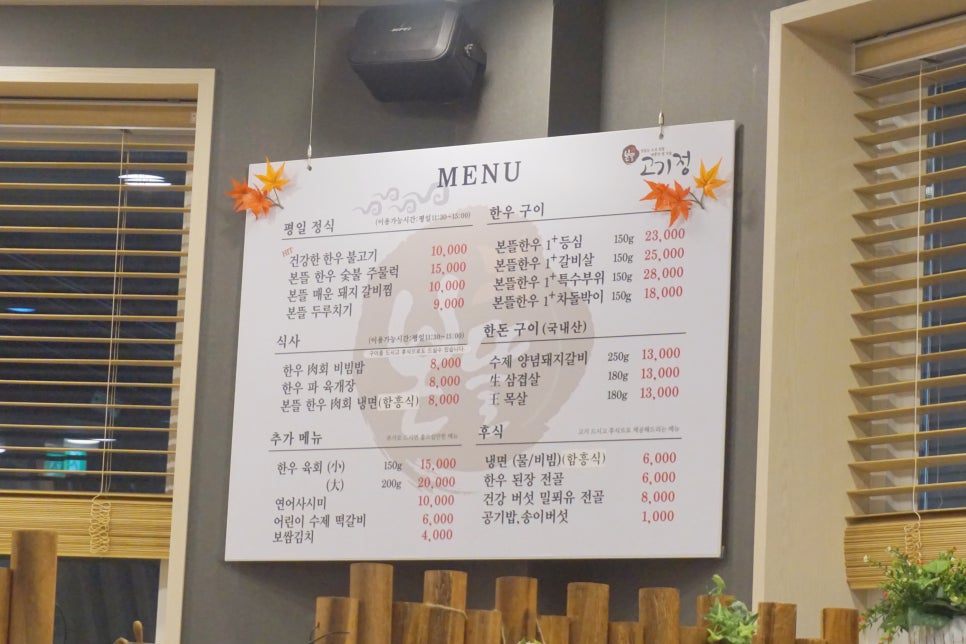 MENU
고기정
평일 정식 (이용가능시간:평일11:30~15:00)
HIT
건강한 한우 불고기 10,000
본뜰 한우 숯불 주물럭 15,000
본뜰 매운 돼지 갈비찜 10,000
본뜰 두루치기 9,000
식사 (이용가능시간:평일11:30~15:00)
한우 肉회 비빔밥 8,000
한우 파 육개장 8,000
본뜰 한우 肉회 냉면(함흥식) 8,000
추가 메뉴
한우 육회 (小) 150g 15,000
(大) 200g 20,000
연어사시미 10,000
어린이 수제 떡갈비 6,000
보쌈김치 4,000
한우 구이
본뜰한우 1+등심 150g 23,000
본뜰한우 1+갈비살 150g 25,000
본뜰한우 1+특수부위 150g 28,000
본뜰한우 1+차돌박이 150g 18,000
한돈 구이(국내산)
수제 양념돼지갈비 250g 13,000
生 삼겹살 180g 13,000
王 목살 180g 13,000
후식 고기 드시고 후식으로 제공해드리는 메뉴
냉면 (물/비빔)(함흥식) 6,000
한우 된장 전골 6,000
건강 버섯 밀푀유 전골 8,000
공기밥,송이버섯 1,000
본뜰